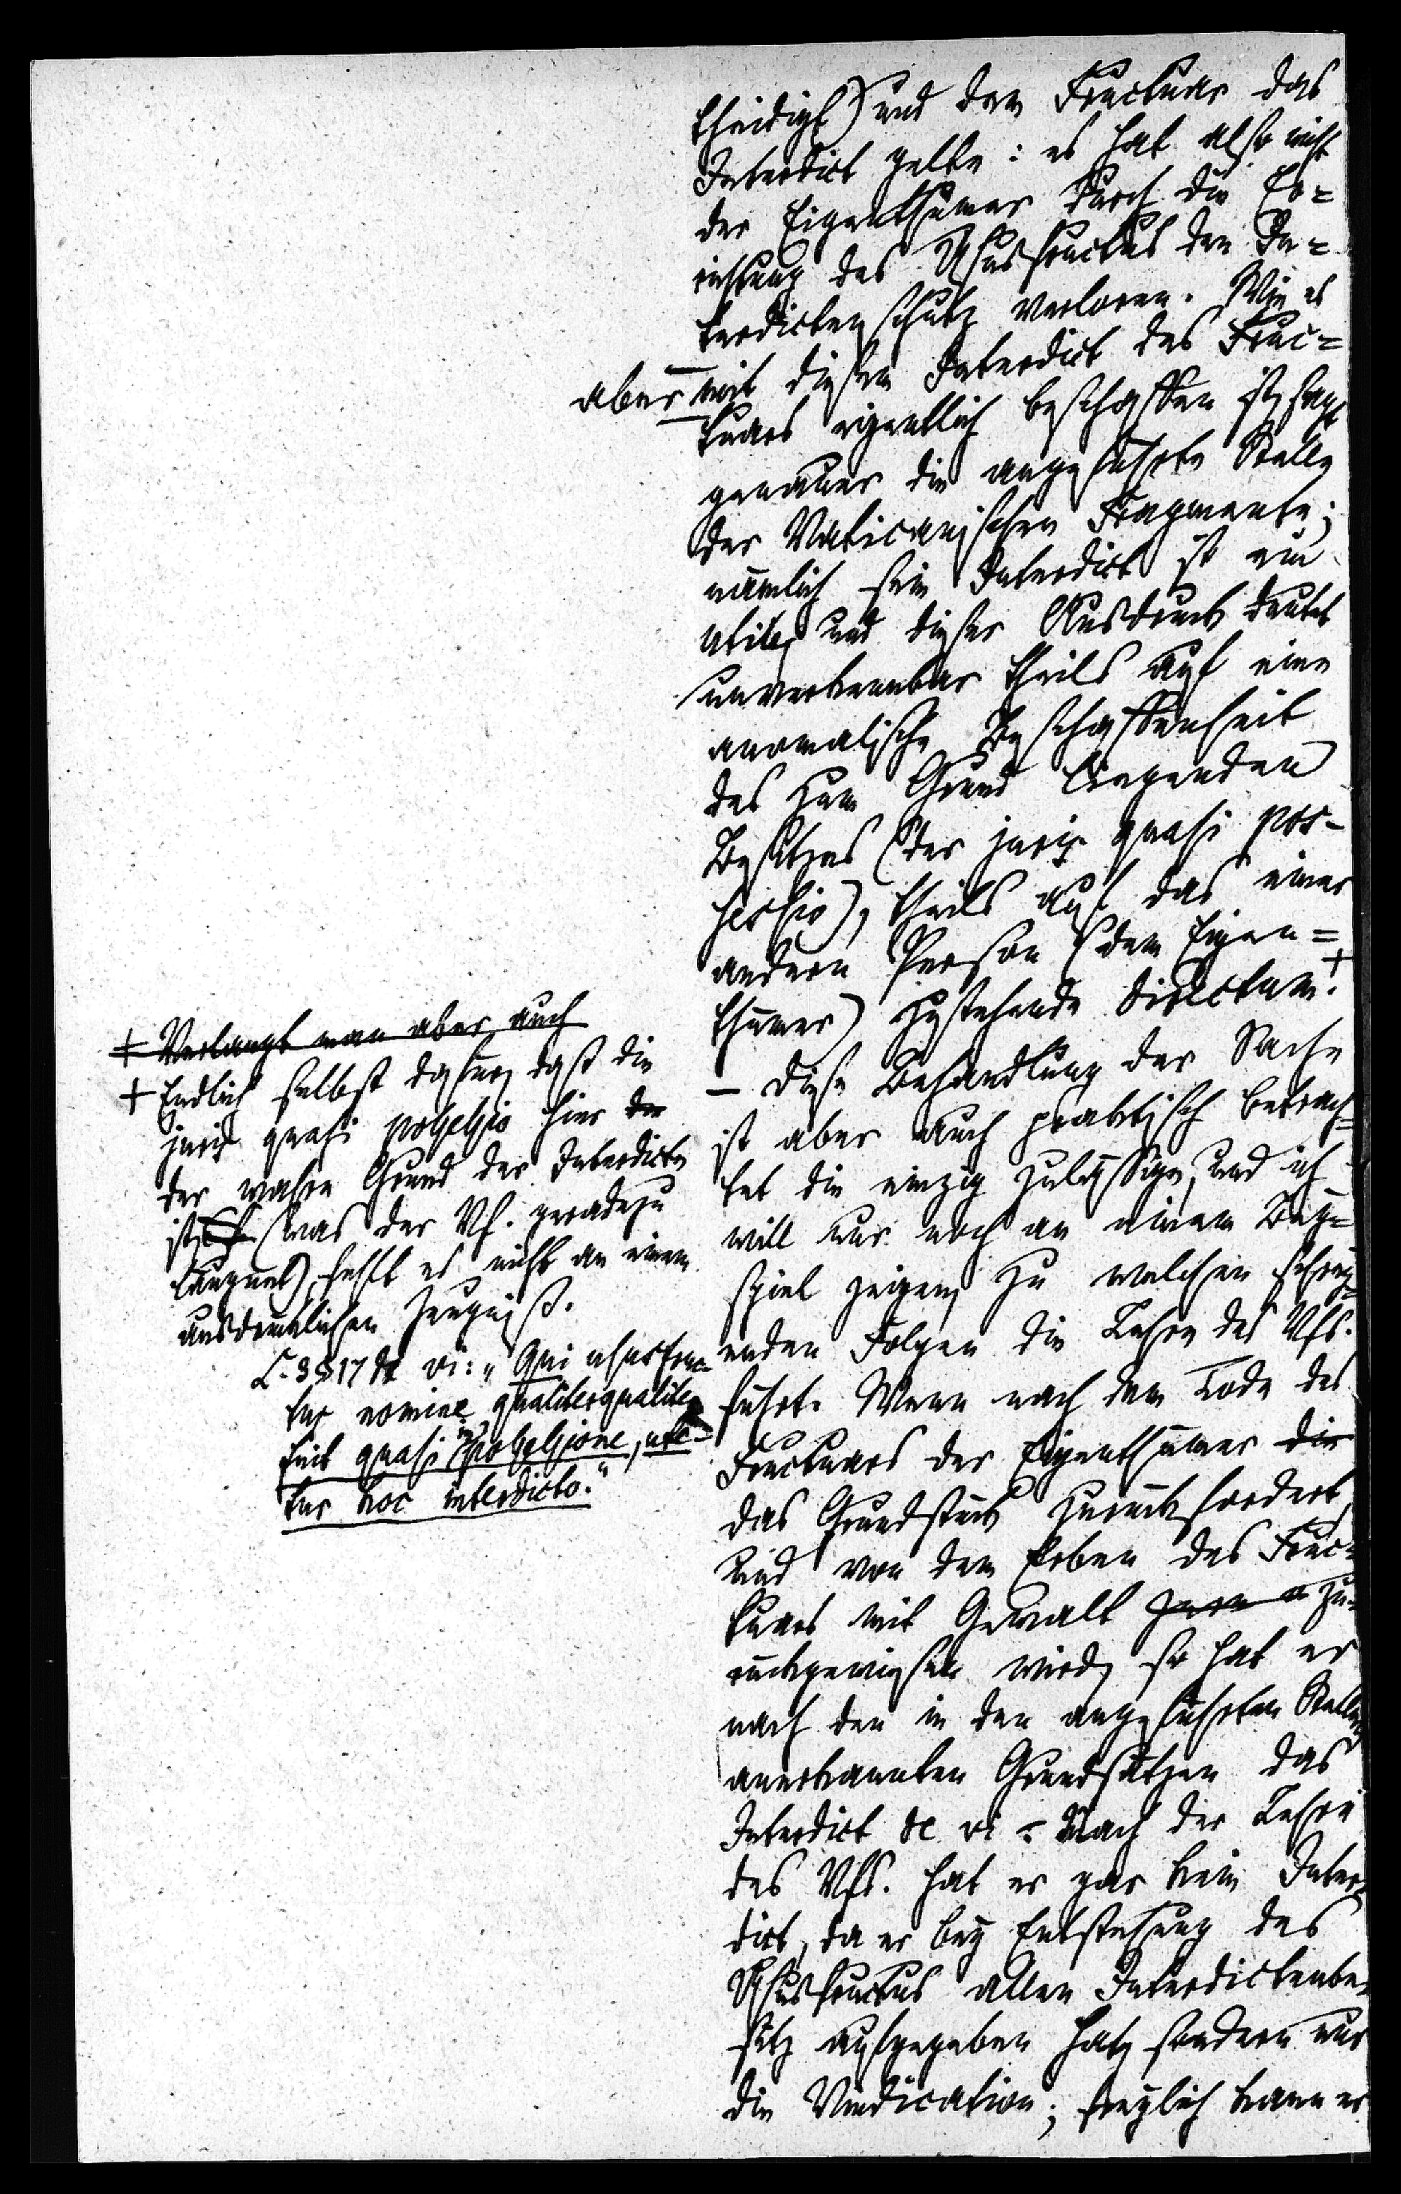 theidigt) und dem Fructuar das
Interdict gebe: es hat also nicht
der Eigenthümer durch die Er=
richtung des Ususfructus den In=
terdictenschutz verloren. Wie es
aber mit diesem Interdict des Fruc=
tuars eigentlich beschaffen ist, sagt
genauer die angeführte Stelle
der Vaticanischen Fragmente;
nämlich sein Interdict ist ein
utile, und dieser Ausdruck deutet
unverkennbar theils auf eine
anomalische Beschaffenheit
des zum Grund liegenden
Besitzes (der juris quasi pos-
sessio), theils auf das einer
andern Person (dem Eigen=
thümer) zustehende directum.+
– Diese Behandlung der Sache
ist aber auch praktisch betrach=
tet die einzig zulässige, und ich
will nur noch an einem Bey=
spiel zeigen, zu welchen schrey=
enden Folgen die Lehre des Vfs.
führt. Wenn nach dem Tode des
Fructuars der Eigenthümer die
das Grundstück zurückfordert,
und von dem Erben des Fruc=
tuars mit Gewalt zu=
rückgewiesen wird, so hat er
nach den in den angeführten Stellen
anerkannten Grundsätzen das
Interdict de vi – Nach der Lehre
des Vfs. hat er gar kein Inter=
dict, da er bey Entstehung des
Ususfructus allen Interdictenbe=
sitz aufgegeben hat, sondern nur
die Vindication; freylich kann er
+ Verlangt man aber auch
+ Endlich selbst dafür, daß die
juris quasi possessio hier der
der wahre Grund der Interdicte
ist, (was der Vf. geradezu
läugnet), fehlt es nicht an einem
ausdrücklichen Zeugniß.
L. 3 § 17 de vi: „Qui ususfruc-
tus nomine qualiterqualiter
fuit quasi in possessione, ute-
tur hoc interdicto.“